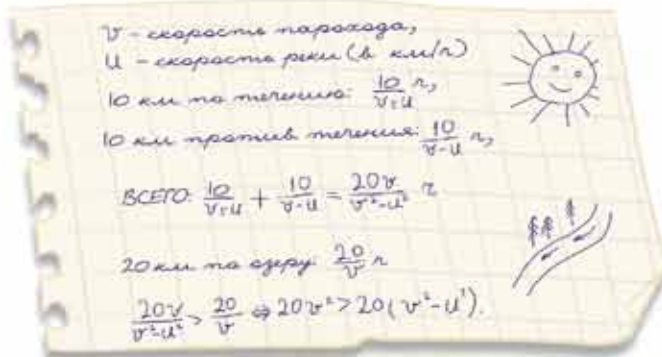 v – скорость парохода,
u – скорость реки (в км/ч)
10 км по течению: 10/(v+u) ч,
10 км против течения: 10/(v-u) ч,
ВСЕГО: 10/(v+u) + 10/(v-u) = 20v/(v²-u²) ч
20 км по озеру: 20/v ч
20v/(v²-u²) > 20/v ⇔ 20v² > 20(v²-u²).